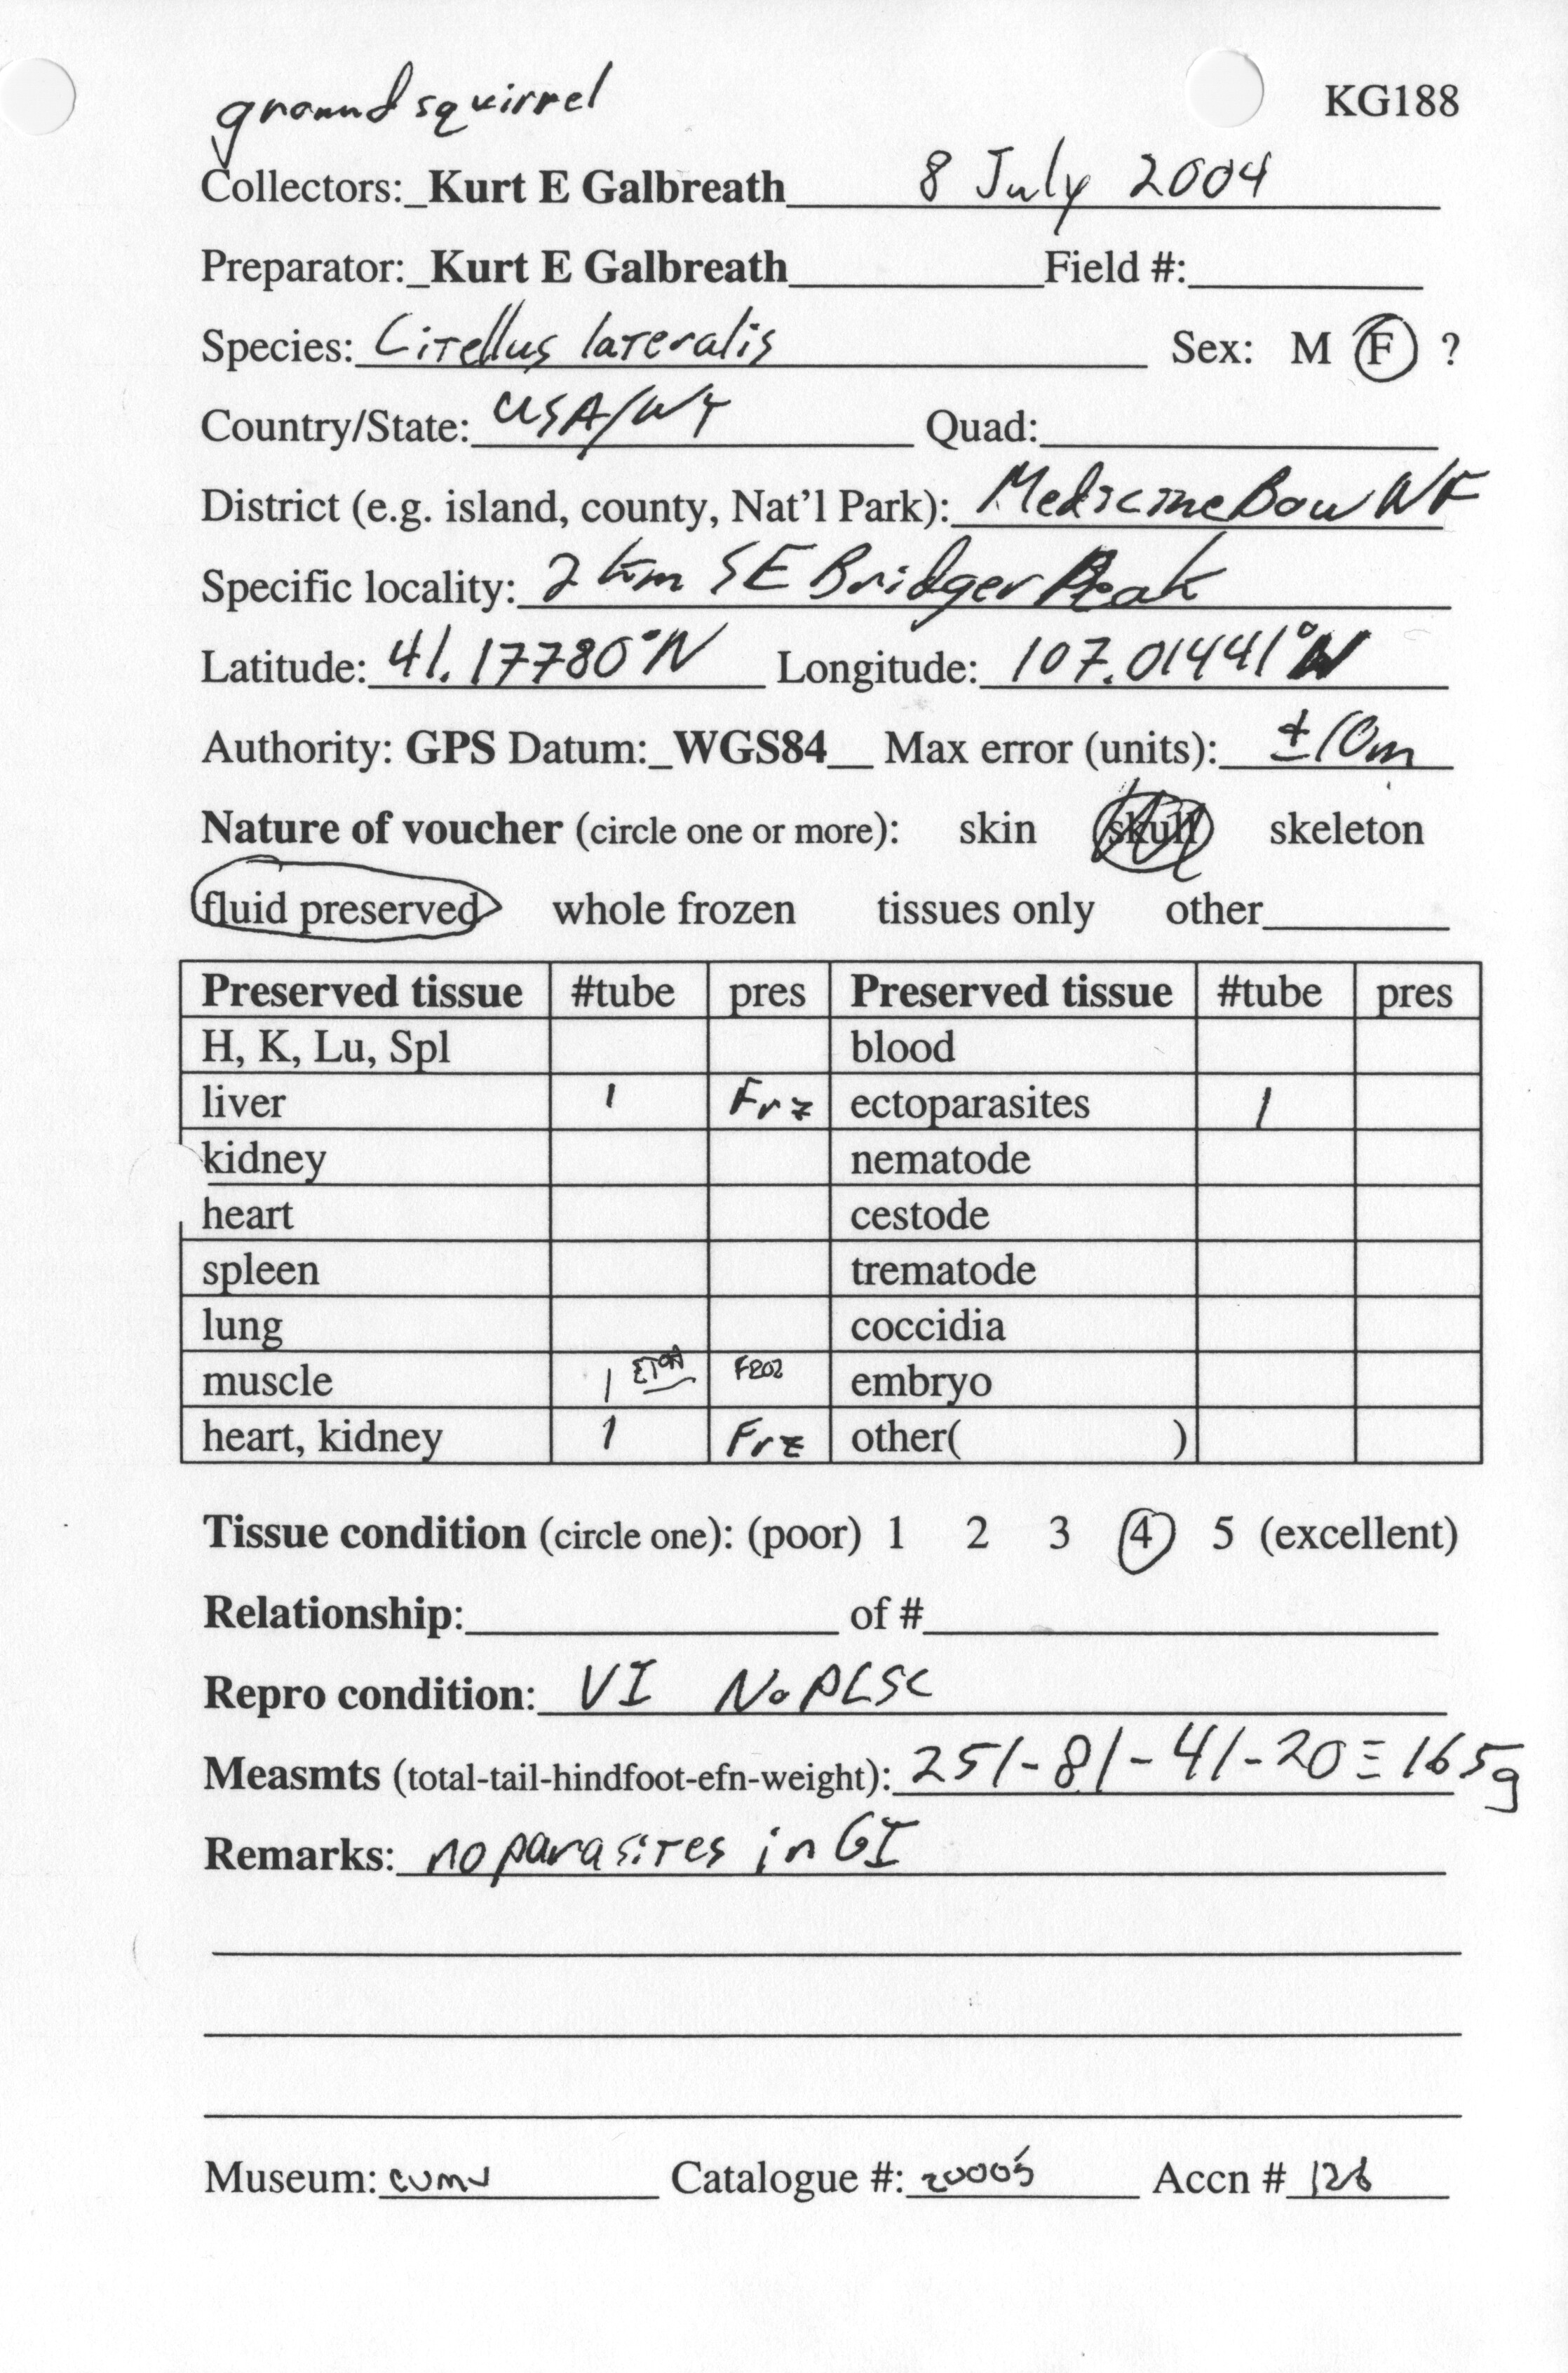 ground squirrel
KG188
Collectors:_Kurt E Galbreath 8 July 2004
Preparator:_Kurt E Galbreath Field #:
Species: Citellus lateralis Sex: M F ?
Country/State: USA/WY Quad:
District (e.g. island, county, Nat'l Park): Medicine Bow NF
Specific locality: 2 km SE Bridger Peak
Latitude: 41.17780°N Longitude: 107.01441°W
Authority: GPS Datum:_WGS84__ Max error (units): ±10m
Nature of voucher (circle one or more): skin skull skeleton
fluid preserved whole frozen tissues only other
Preserved tissue #tube pres Preserved tissue #tube pres
H, K, Lu, Spl blood
liver 1 Frz ectoparasites 1
kidney nematode
heart cestode
spleen trematode
lung coccidia
muscle 1 ETOH FROZ embryo
heart, kidney 1 Frz other( )
Tissue condition (circle one): (poor) 1 2 3 4 5 (excellent)
Relationship: of #
Repro condition: VI No PLSC
Measmts (total-tail-hindfoot-efn-weight): 251-81-41-20≡165g
Remarks: no parasites in GI
Museum: CUMV Catalogue #: 20005 Accn # 126